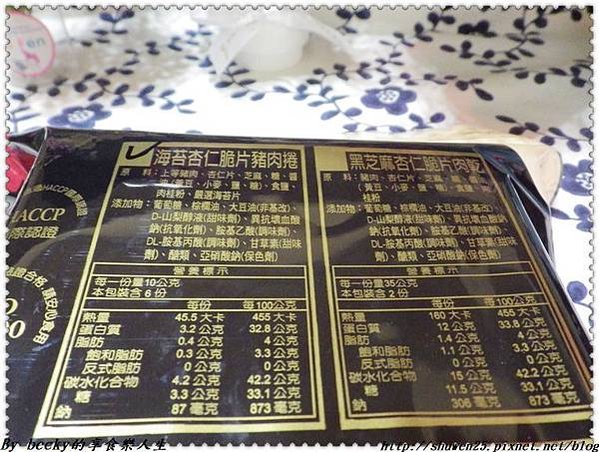 海苔杏仁脆片豬肉捲
原 料：上等豬肉、杏仁片、芝麻、糖、醬
油(黃豆、小麥、鹽、糖)、食鹽、
肉桂粉、嚴選海苔片
添加物：葡萄糖、棕櫚油、大豆油(非基改)
D-山梨醇液(甜味劑)、異抗壞血酸
鈉(抗氧化劑)、胺基乙酸(調味劑)、
DL-胺基丙酸(調味劑)、甘草素(甜味
劑)、醋類、亞硝酸鈉(保色劑)
營養標示
每一份量10公克
本包裝含 6 份
每份 每100公克
熱量 45.5 大卡 455 大卡
蛋白質 3.2 公克 32.8 公克
脂肪 0.4 公克 4 公克
飽和脂肪 0.3 公克 3.3 公克
反式脂肪 0 公克 0 公克
碳水化合物 4.2 公克 42.2 公克
糖 3.3 公克 33.1 公克
鈉 87 毫克 873 毫克
黑芝麻杏仁脆片肉乾
原 料：豬肉、杏仁片、芝麻、
(黃豆、小麥、鹽、糖)、食鹽、肉
桂粉
添加物：葡萄糖、棕櫚油、大豆油(非基改)、
D-山梨醇液(甜味劑)、異抗壞血酸
鈉(抗氧化劑)、胺基乙酸(調味劑)、
DL-胺基丙酸(調味劑)、甘草素(甜味
劑)、醋類、亞硝酸鈉(保色劑)
營養標示
每一份量35公克
本包裝含 2 份
每份 每100公克
熱量 160 大卡 455 大卡
蛋白質 12 公克 33.8 公克
脂肪 1.4 公克 4 公克
飽和脂肪 1.1 公克 3.3 公克
反式脂肪 0 公克 0 公克
碳水化合物 15 公克 42.2 公克
糖 11.5 公克 33.1 公克
鈉 306 毫克 873 毫克
HACCP
By becky的享食樂人生
http://shuwen25.pixnet.net/blog